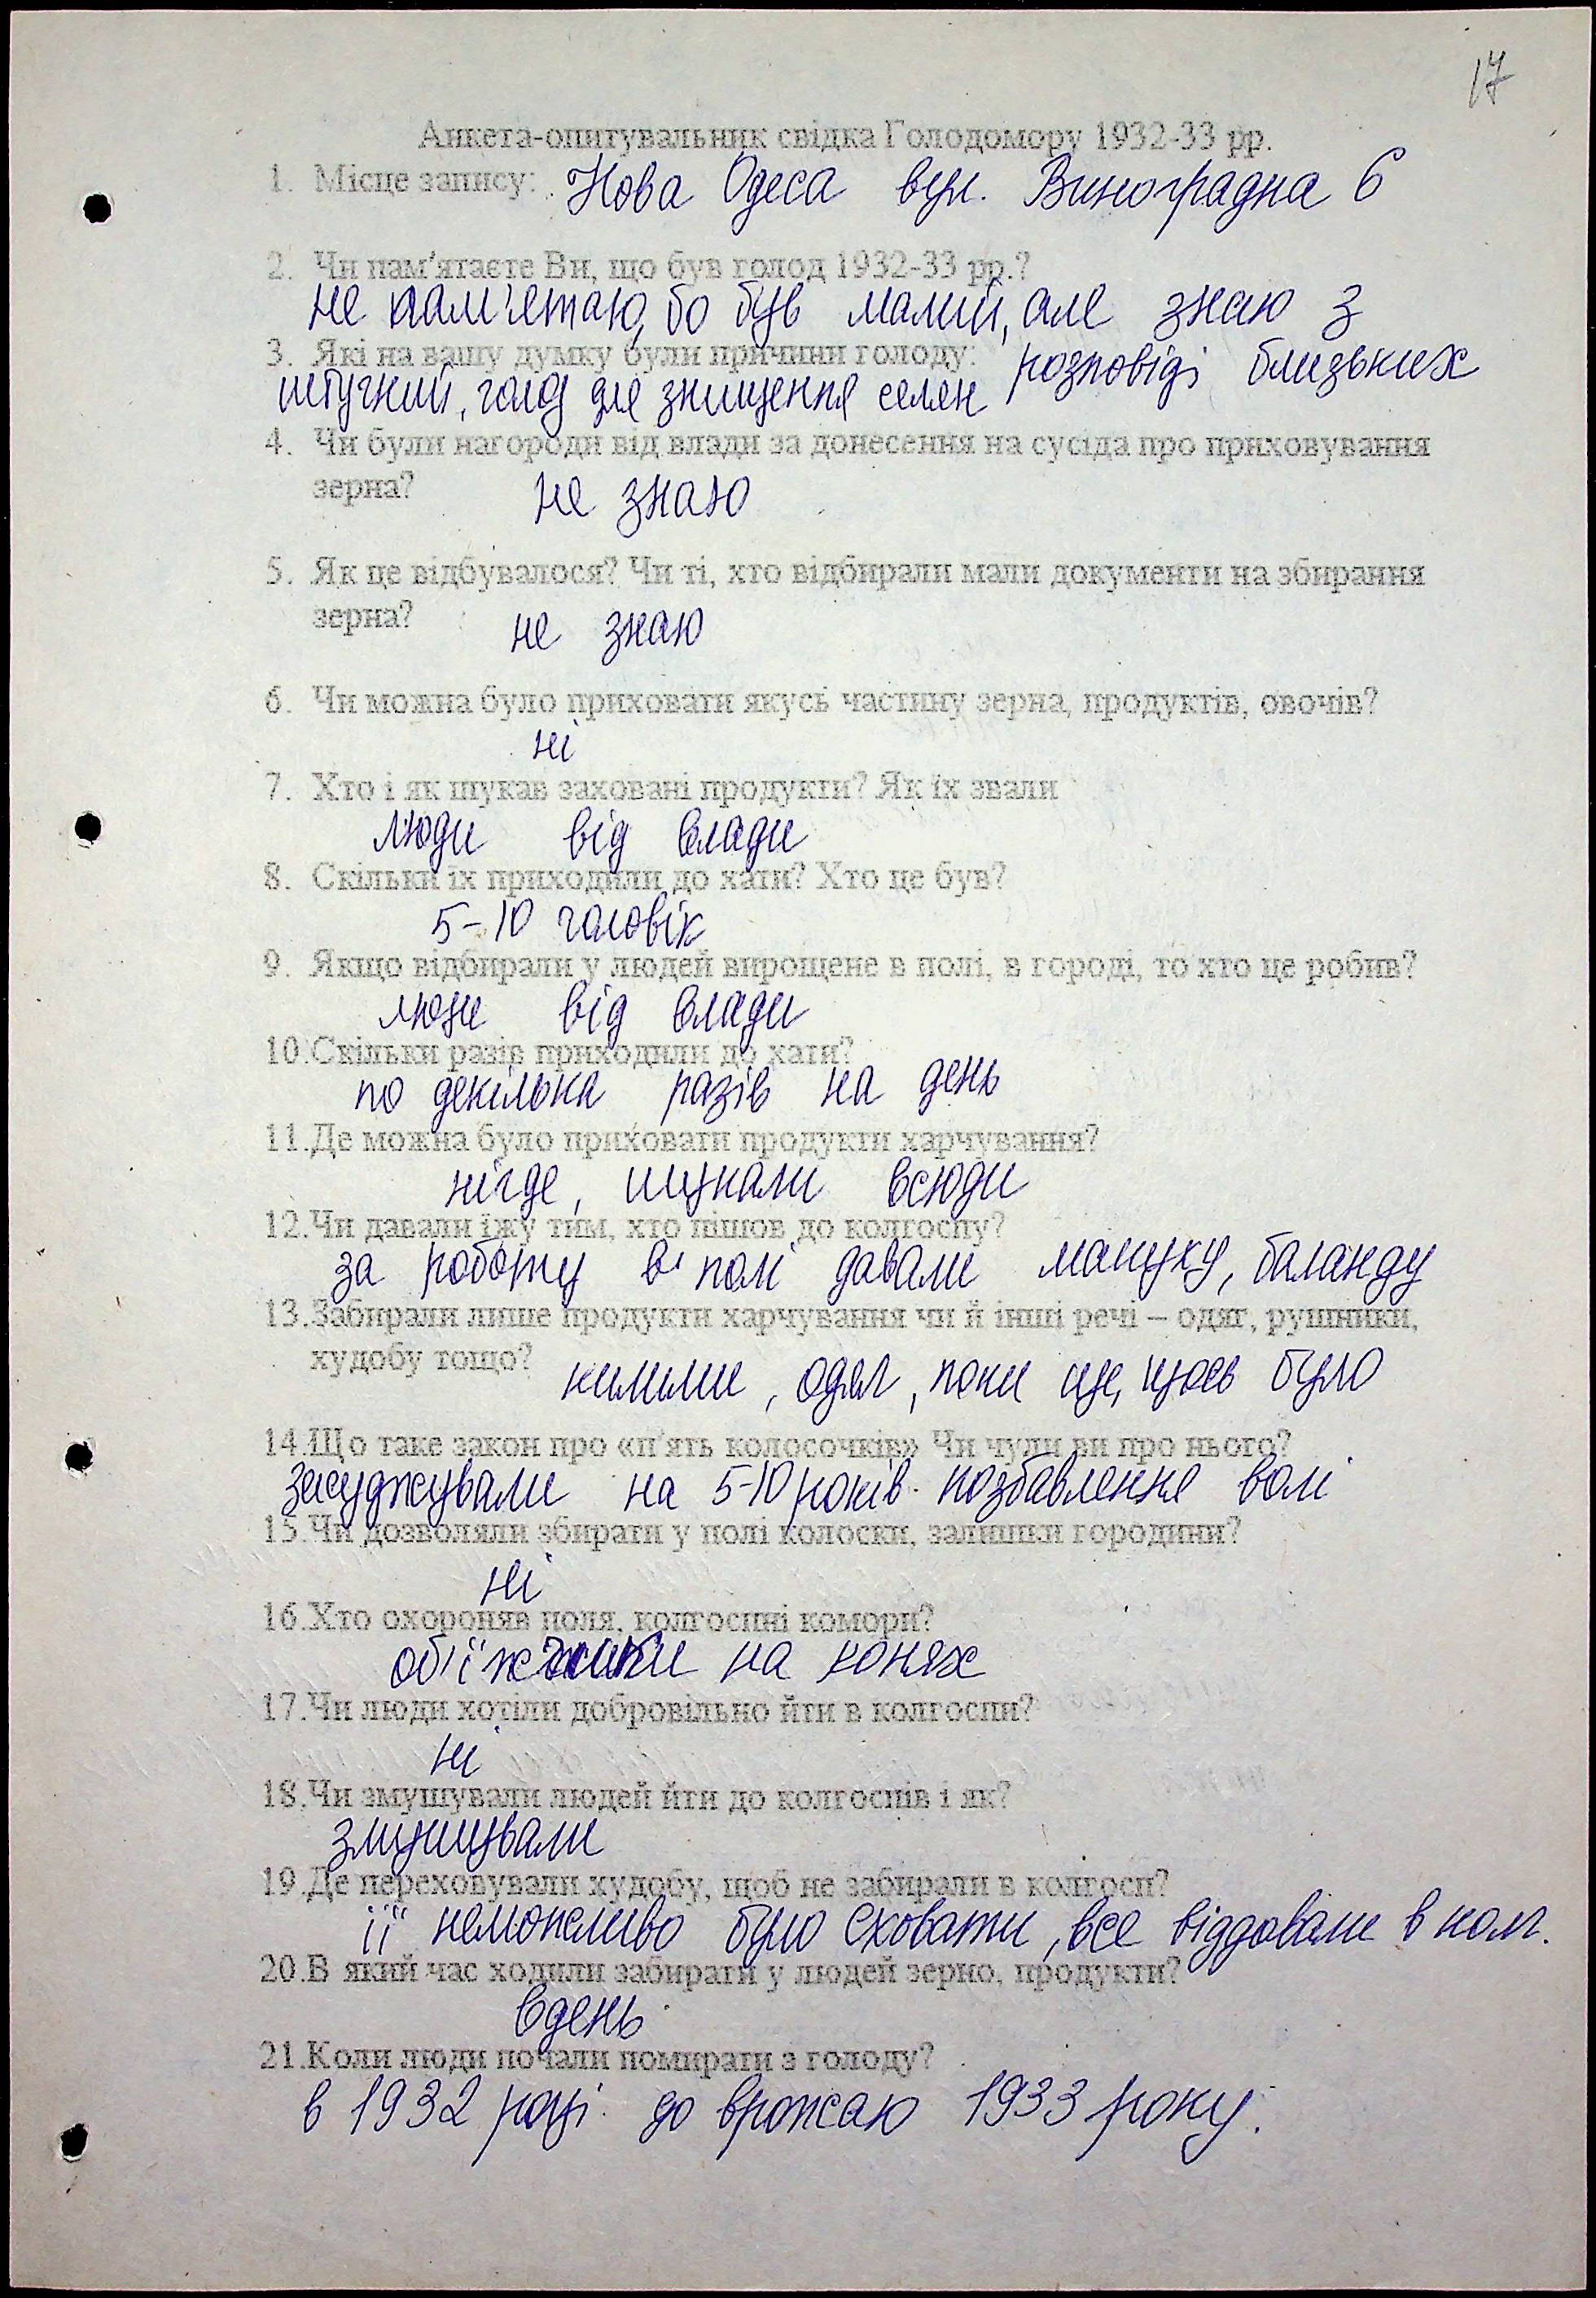 17
Анкета-опитувальник свідка Голодомору 1932-33 рр.
1. Місце запису: Нова Одеса вул. Виноградна 6
2. Чи пам'ятаєте Ви, що був голод 1932-33 рр.?
не пам'ятаю, бо був малий, але знаю з
розповіді близьких
3. Які на вашу думку були причини голоду:
штучний, голод для знищення селян
4. Чи були нагороди від влади за донесення на сусіда про приховування
зерна? не знаю
5. Як це відбувалося? Чи ті, хто відбирали мали документи на збирання
зерна? не знаю
6. Чи можна було приховати якусь частину зерна, продуктів, овочів?
ні
7. Хто і як шукав заховані продукти? Як їх звали
люди від влади
8. Скільки їх приходили до хати? Хто це був?
5-10 чоловік
9. Якщо відбирали у людей вирощене в полі, в городі, то хто це робив?
люди від влади
10.Скільки разів приходили до хати?
по декілька разів на день
11.Де можна було приховати продукти харчування?
нігде, шукали всюди
12.Чи давали їжу тим, хто пішов до колгоспу?
за роботу в полі давали макуху, баланду
13.Забирали лише продукти харчування чи й інші речі – одяг, рушники,
худобу тощо? килими, одяг, поки ще щось було
14.Що таке закон про «п'ять колосочків» Чи чули ви про нього?
засуджували на 5-10 років позбавлення волі
15.Чи дозволяли збирати у полі колоски, залишки городини?
ні
16.Хто охороняв поля, колгоспні комори?
об'їжчики на конях
17.Чи люди хотіли добровільно йти в колгоспи?
ні
18.Чи змушували людей йти до колгоспів і як?
змушували
19.Де переховували худобу, щоб не забирали в колгосп?
її неможливо було сховати, все віддавали в колг.
20.В який час ходили забирати у людей зерно, продукти?
вдень
21.Коли люди почали помирати з голоду?
в 1932 році до врожаю 1933 року.